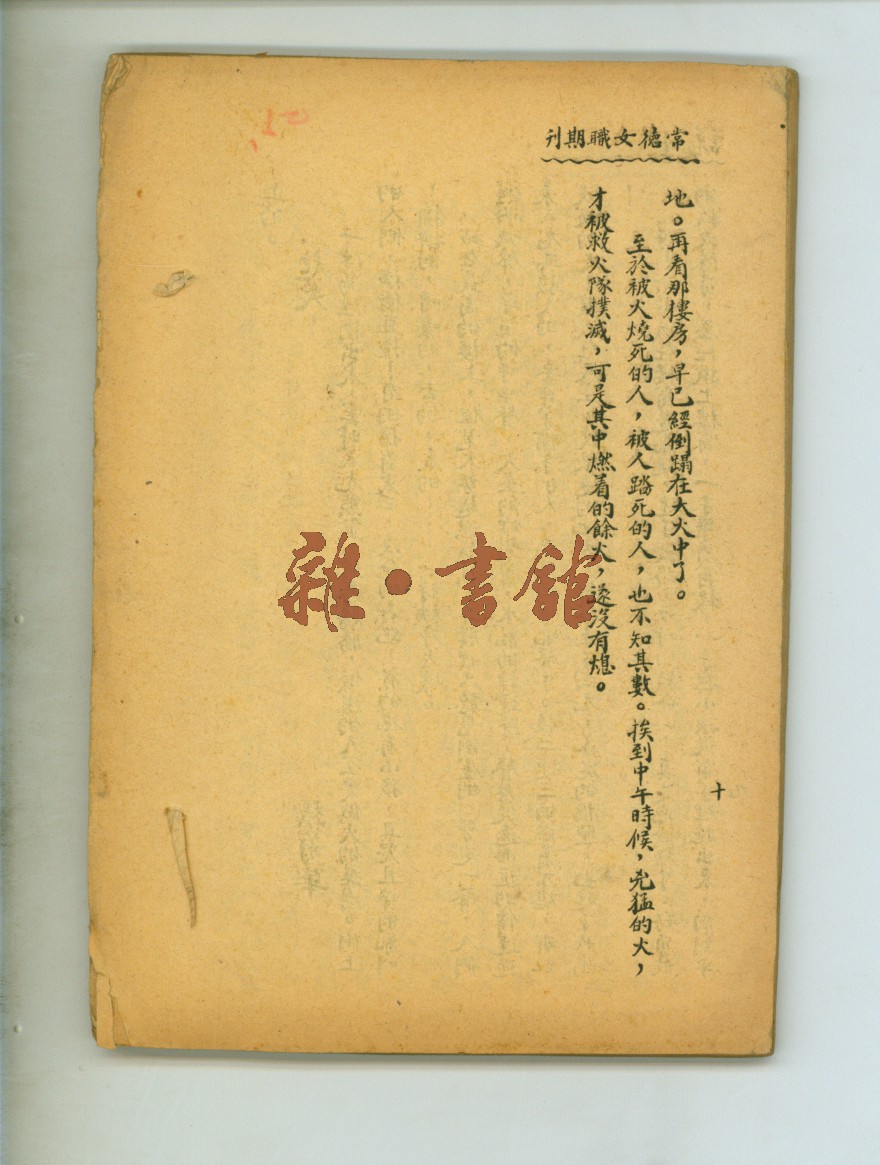 常德女職期刊
地。再看那樓房，早已經倒蹋在大火中了。
至於被火燒死的人，被人踏死的人，也不知其數。挨到中午時候，兇猛的火，
才被救火隊撲滅，可是其中燃着的餘火，還沒有熄。
十
雜·書館